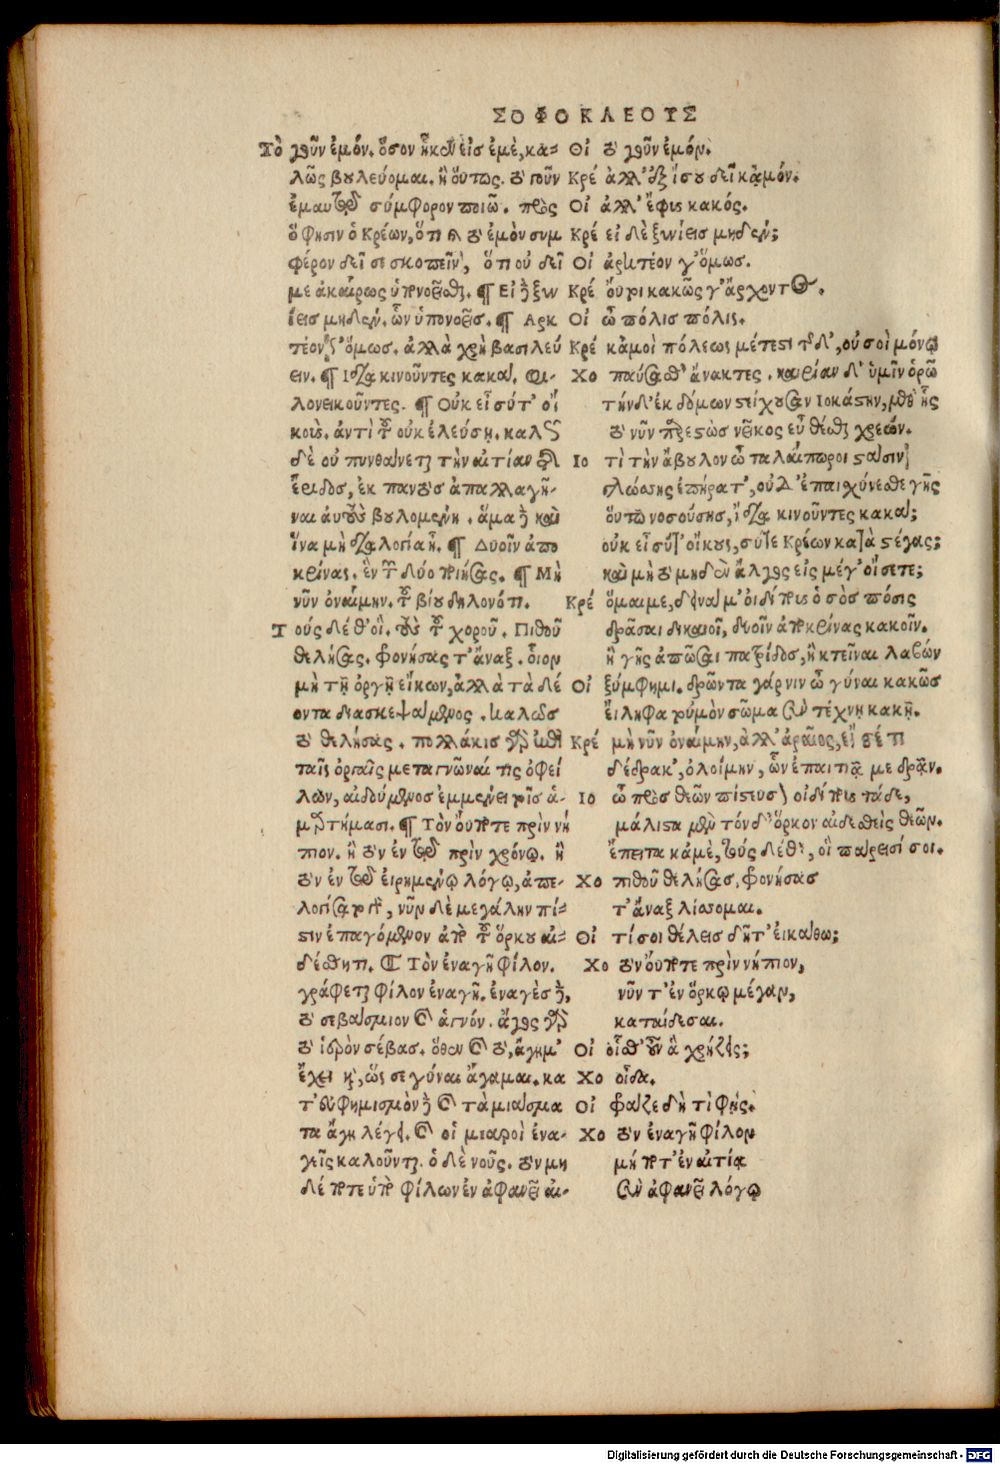 ΣΟΦΟΚΛΕΟΥΣ
Τὸ γοῦν ἐμόν. ὅσον ἧκεν εἰς ἐμὲ, κα-
λῶς βουλεύομαι. ἢ οὕτως. οὐκοῦν
ἐμαυτῷ σύμφορον ποιῶ. πρὸς
ὅ φησιν ὁ Κρέων, ὅτι καὶ τοὐμὸν συμ
φέρον δεῖ σε σκοπεῖν, ὅτι οὐ δεῖ
με ἀκαίρως ὑπονοεῖσθαι. ¶ Εἰ δὲ ξυν
ίεις μηδέν. ὧν ὑπονοεῖς. ¶ Αρκ
τέον γ' ὅμως. ἀλλὰ χρὴ βασιλεύ
ειν. ¶ Ιδια κινοῦντες κακά. φι-
λονεικοῦντες. ¶ Οὐκ εἶ σύ τ' οἴ
κους. ἀντὶ τοῦ οὐκ ἐλεύσῃ. καλῶς
δὲ οὐ πυνθάνεται τὴν αἰτίαν τῆς
ἔριδος, ἐκ παντὸς ἀπαλλαγῆ-
ναι αὐτοὺς βουλομένη. ἅμα δὲ καὶ
ἵνα μὴ διαλογίαν ᾖ. ¶ Δυοῖν ἀπο
κρίνας. ἓν τῶν δύο ποιήσας. ¶ Μὴ
νῦν ὀναίμην. τοῦ βίου δηλονότι.
Τούς δέ θ' οἵ. τοὺς τοῦ χοροῦ. Πιθοῦ
θελήσας. φρονήσας τ' ἄναξ. οἷον
μὴ τῇ ὀργῇ εἴκων, ἀλλὰ τὰ δέ
οντα διασκεψάμενος. καλῶς δὲ
τὸ θελήσας. πολλάκις γὰρ καθὶ
ταῖς ὀργαῖς μεταγνῶναί τις ὀφεί
λων, αἰδούμενος ἐμμένει τοῖς ἁ-
μαρτήμασι. ¶ Τὸν οὔτε πρὶν νή
πιον. ἢ τὸν ἐν τῷ πρὶν χρόνῳ. ἢ
τὸν ἐν τῷ εἰρημένῳ λόγῳ, ἀπε-
λογήσατο γὰρ, νῦν δὲ μεγάλην πί-
στιν ἐπαγόμενον ἀπὸ τοῦ ὅρκου αἰ-
δέσθητι. ¶ Τὸν ἐναγῆ φίλον.
γράφεται φίλον ἐναγῆ. ἐναγὲς δὲ,
τὸ σεβάσμιον καὶ ἁγνόν. ἄγος γὰρ
τὸ ἱερὸν σέβας. ὅθεν καὶ τὸ, ἄγημ'
ἔχει καὶ, ὥς σε γύναι ἄγαμαι. κα
τ' εὐφημισμὸν δὲ καὶ τὰ μιάσματα
τα ἄγη λέγει. καὶ οἱ μιαροὶ ἐνα-
γεῖς καλοῦνται. ὁ δὲ νοῦς. τὸν μη
δέποτε ὑπὸ φίλων ἐν ἀφανεῖ αἰ-
Οἰ τὸ γοῦν ἐμόν.
Κρέ ἀλλ' ἐξ ἴσου δεῖ κἀμόν.
Οἰ ἀλλ' ἔφυς κακός.
Κρέ εἰ δὲ ξυνίεις μηδέν;
Οἰ ἀρκτέον γ' ὅμως.
Κρέ οὔτοι κακῶς γ' ἄρχοντος.
Οἰ ὦ πόλις πόλις.
Κρέ κἀμοὶ πόλεως μέτεστι τῆσδ', οὐ σοὶ μόνῳ
Χο παύσασθ' ἄνακτες. καιρίαν δ' ὑμῖν ὁρῶ
τήνδ' ἐκ δόμων στείχουσαν Ιοκάστην, μεθ' ἧς
τὸ νῦν παρεστὼς νεῖκος εὖ θέσθαι χρεών.
Ιο τὶ τὴν ἄβουλον ὦ ταλαίπωροι στάσιν
γλώσσης ἐπήρατ', οὐδ' ἐπαισχύνεσθε γῆς
οὕτω νοσούσης, ἴδια κινοῦντες κακά;
οὐκ εἶ σύ τ' οἴκους, σύ τε Κρέων κατὰ στέγας;
καὶ μὴ τὸ μηδὲν ἄλγος εἰς μέγ' οἴσετε;
Κρέ ὅμαιμε, δεινά μ' οἰδίπους ὁ σὸς πόσις
δρᾶσαι δικαιοῖ, δυοῖν ἀποκρίνας κακοῖν.
ἢ γῆς ἀπῶσαι πατρίδος, ἢ κτεῖναι λαβών
Οἰ ξύμφημι. δρῶντα γάρ νιν ὦ γύναι κακῶς
εἴληφα τοὐμὸν σῶμα σὺν τέχνῃ κακῇ.
Κρέ μὴ νῦν ὀναίμην, ἀλλ' ἀραῖος, εἴ σέ τι
δέδρακ', ὀλοίμην, ὧν ἐπαιτιᾷ με δρᾷν.
Ιο ὦ πρὸς θεῶν πίστευσον οἰδίπους τάδε,
μάλιστα μὲν τόνδ' ὅρκον αἰδεσθεὶς θεῶν.
ἔπειτα κἀμὲ, τούς δέ θ', οἳ πάρεισί σοι.
Χο πιθοῦ θελήσας, φρονήσας
τ' ἄναξ λίσσομαι.
Οἰ τί σοι θέλεις δῆτ' εἰκάθω;
Χο τὸν οὔτε πρὶν νήπιον,
νῦν τ' ἐν ὅρκῳ μέγαν,
καταίδεσαι.
Οἰ οἶσθ' οὖν ἃ χρήζεις;
Χο οἶδα.
Οἰ φράζε δὴ τὶ φής.
Χο τὸν ἐναγῆ φίλον
μήποτ' ἐν αἰτίᾳ
σὺν ἀφανεῖ λόγῳ
Digitalisierung gefördert durch die Deutsche Forschungsgemeinschaft - DFG